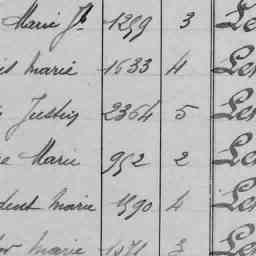 Marie Jh 1299 3 Le
is Marie 1633 4 Le
Justin 2364 5 Le
e Marie 952 2 Le
dent Marie 1390 4 Le
or Marie 1071 3 Le